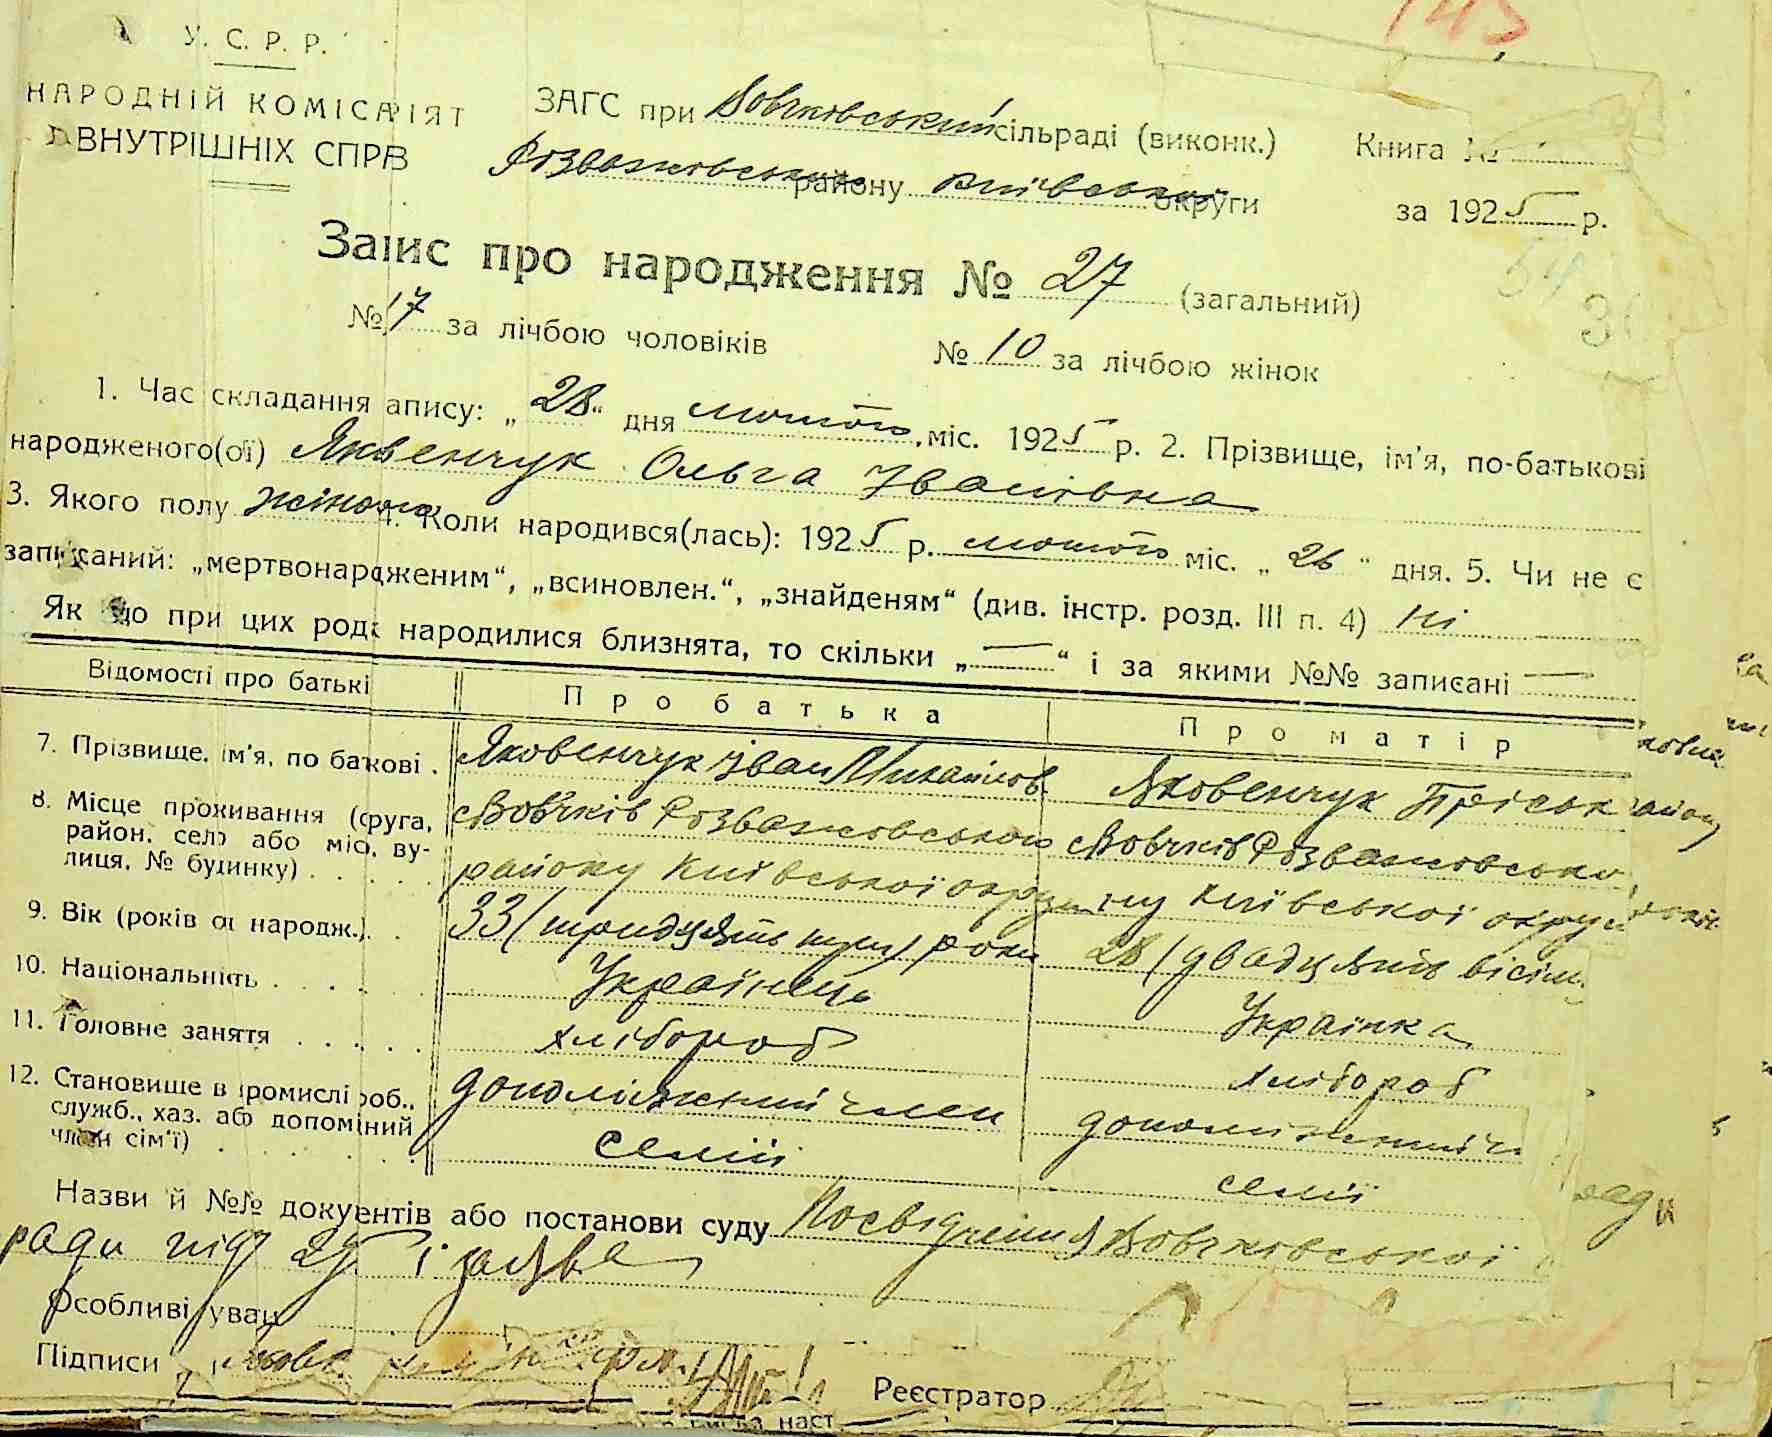 145
У. С. Р. Р.
НАРОДНІЙ КОМІСАРІЯТ
ВНУТРІШНІХ СПРАВ
ЗАГС при Вовчківський сільраді (виконк.)
Розважовського району Київської округи
Книга №
за 1925 р.
Запис про народження № 27 (загальний)
№ 17 за лічбою чоловіків № 10 за лічбою жінок
1. Час складання запису: „28“ дня лютого міс. 1925 р. 2. Прізвище, ім'я, по-батькові
народженого(ої) Яквенчук Ольга Іванівна
3. Якого полу жіноч 4. Коли народився(лась): 1925 р. лютого міс. „26“ дня. 5. Чи не є
записаний: „мертвонародженим“, „всиновлен.“, „знайденям“ (див. інстр. розд. III п. 4) ні
Як що при цих родах народилися близнята, то скільки „—“ і за якими №№ записані —
Відомості про батьків
Про батька
Про матір
7. Прізвище, ім'я, по батькові . Яковенчук Іван Михайлов. Яковенчук Пріськ
8. Місце проживання (округа, район, село або місто, вулиця, № будинку) с Вовчків Розважовського району Київської округи с Вовчків Розважовсько, ну Київської округи
9. Вік (років от народж.) . 33 (тридцять три) роки 28 (двадцять вісім
10. Національність . . . . Українець Українка
11. Головне заняття . . . . . хлібороб хлібороб
12. Становище в промислі (роб., служб., хаз. або допоміжний член сім'ї) . допоміжний член семії допоміжний ч семії
Назви й №№ документів або постанови суду Посвідчення Вовчківської
ради під 27 і заява
Особливі уваги
Підписи
Реєстратор